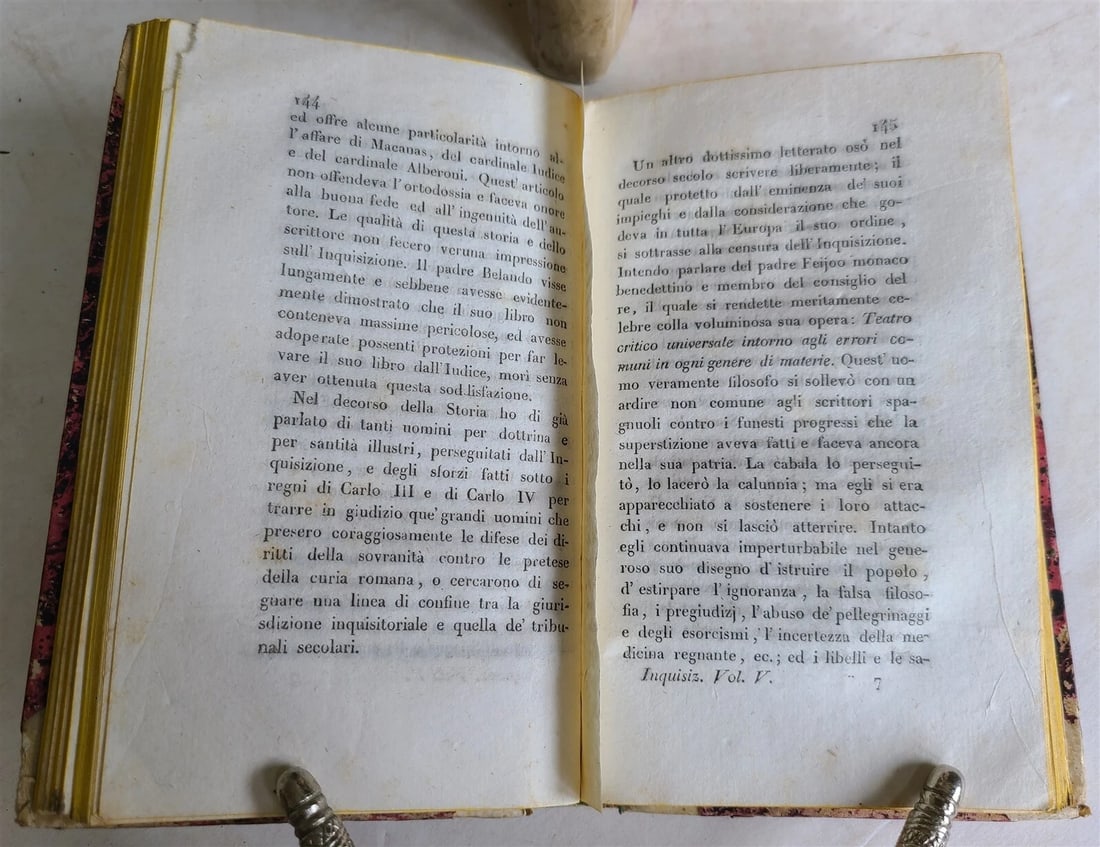 144
ed offre alcune particolarità intorno al-
l'affare di Macanas, del cardinale Iudice
e del cardinale Alberoni. Quest'articolo
non offendeva l'ortodossia e faceva onore
alla buona fede ed all'ingenuità dell'au-
tore. Le qualità di questa storia e dello
scrittore non fecero veruna impressione
sull'Inquisizione. Il padre Belando visse
lungamente e sebbene avesse evidente-
mente dimostrato che il suo libro non
conteneva massime pericolose, ed avesse
adoperate possenti protezioni per far le-
vare il suo libro dall'Iudice, morì senza
aver ottenuta questa soddisfazione.
Nel decorso della Storia ho di già
parlato di tanti uomini per dottrina e
per santità illustri, perseguitati dall'In-
quisizione, e degli sforzi fatti sotto i
regni di Carlo III e di Carlo IV per
trarre in giudizio que' grandi uomini che
presero coraggiosamente le difese dei di-
ritti della sovranità contro le pretese
della curia romana, o cercarono di se-
gnare una linea di confine tra la giuri-
sdizione inquisitoriale e quella de' tribu-
nali secolari.
145
Un altro dottissimo letterato osò nel
decorso secolo scrivere liberamente; il
quale protetto dall'eminenza de' suoi
impieghi e dalla considerazione che go-
deva in tutta l'Europa il suo ordine,
si sottrasse alla censura dell'Inquisizione.
Intendo parlare del padre Feijoo monaco
benedettino e membro del consiglio del
re, il quale si rendette meritamente ce-
lebre colla voluminosa sua opera: Teatro
critico universale intorno agli errori co-
muni in ogni genere di materie. Quest'uo-
mo veramente filosofo si sollevò con un
ardire non comune agli scrittori spa-
gnuoli contro i funesti progressi che la
superstizione aveva fatti e faceva ancora
nella sua patria. La cabala lo persegui-
tò, lo lacerò la calunnia; ma egli si era
apparecchiato a sostenere i loro attac-
chi, e non si lasciò atterrire. Intanto
egli continuava imperturbabile nel gene-
roso suo disegno d'istruire il popolo,
d'estirpare l'ignoranza, la falsa filoso-
fia, i pregiudizj, l'abuso de' pellegrinaggi
e degli esorcismi, l'incertezza della me-
dicina regnante, ec.; ed i libelli e le sa-
Inquisiz. Vol. V. 7